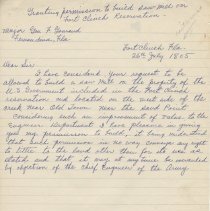 Granting permission to build saw mill on
Fort Clinch Reservation.
Major Geo. F.
Fernandina, Fla
Fort Clinch Fla.
26th July 1865
Dear Sir
I have considered your request to be
allowed to build a saw mill on the property of the
U.S. Government included in the Fort Clinch
reservation and located on the west side of the
creek near Old Town near the Sand Point
Considering such an improvement of value to the
Engineer Department I have pleasure in giving
you my permission to build, it being understood
that such permission in no way conveys any right
to title to the land other than for its use as
stated and that it may at any time be revoked
by objection of the Chief Engineer of the Army.